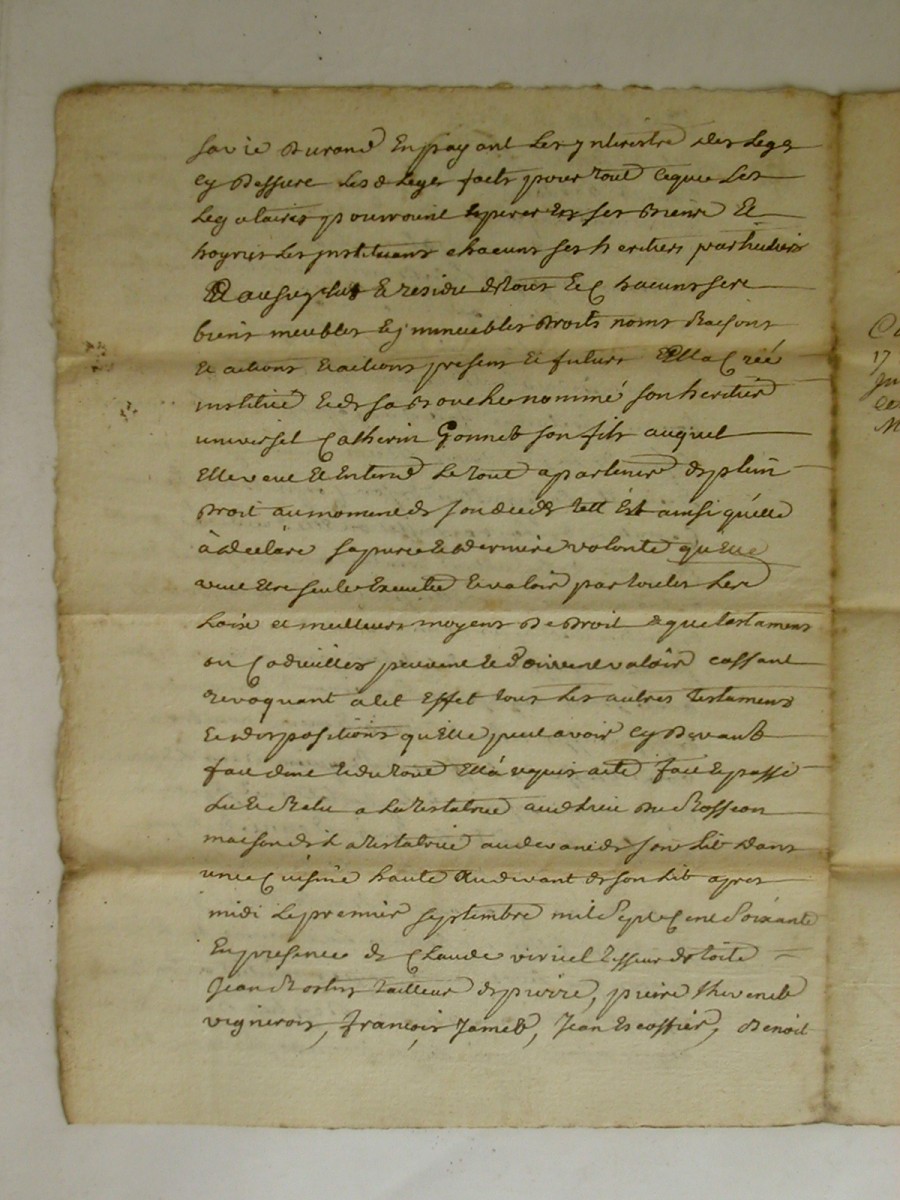 sa vie Durand En payant Les ynterestz des Legs
cy Dessure Lesd Legs faits pour tout ceque Les
Legataires pourroient Esperer En ses Biens Et
hoyries Les ynstituans chacuns ses heritiers particuliers
Et au surplus Et residu de tous Et Chacuns ses
biens meubles Et ymmeubles Droits noms Raisons
Et actions presens Et futurs Ella Créé
institué Et de sa Bouche nommé son heritier
universel Catherin Gonnet son fils auquel
Elle veut Et Entend Le tout apartenir de plein
Droit au moment de son deceds tell Est ainsi quelle
à declare sa pure Et derniere volonté quelle
veut Etre seule Executée Et valoir par toutes Les
Loix et meilleurs moyens De Droit que testamens
ou Codicilles peuvent Et Doivent valoir cassant
revoquant a Cet Effet tous Les autres testamens
Et dispositions quElle peut avoir cy Devant
fait dont Et du tout Ella requis acte fait Et passé
Lu Et Relu a La testatrice aud Lieu Du Rosseon
maison de La testatrice audevant de son Lit dans
une Cuisine haute Audevant de son Lit apres
midi Le premier septembre mil Sept Cent Soixante
En presence de Claude viriel tisseur de toile
Jean tailleur de pierre, pierre thevenet
vigneron, François Jamet, Jean Escoffier, Benoit
Ca
17